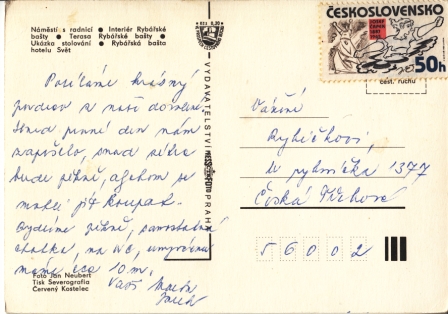 Náměstí s radnicí ● Interiér Rybářské
bašty ● Terasa Rybářské bašty ●
Ukázka stolování ● Rybářská bašta
hotelu Svět
Posíláme krásný
pozdrav z naší dovolené.
první den nám
zapršelo, snad zítra
bude pěkně, abychom se
mohli jít koupat.
Bydlíme pěkně, samostatná
chatka, na WC, umývárnu
máme cca 10 m.
Vaši
Foto Jan Neubert
Tisk Severografia
Červený Kostelec
VYDAVATELSTVÍ PRESSFOTO PRAHA
ČESKOSLOVENSKO
50h
čest. ruchu
Vážení
Rybičkovi,
1377
Česká Třebová
56002